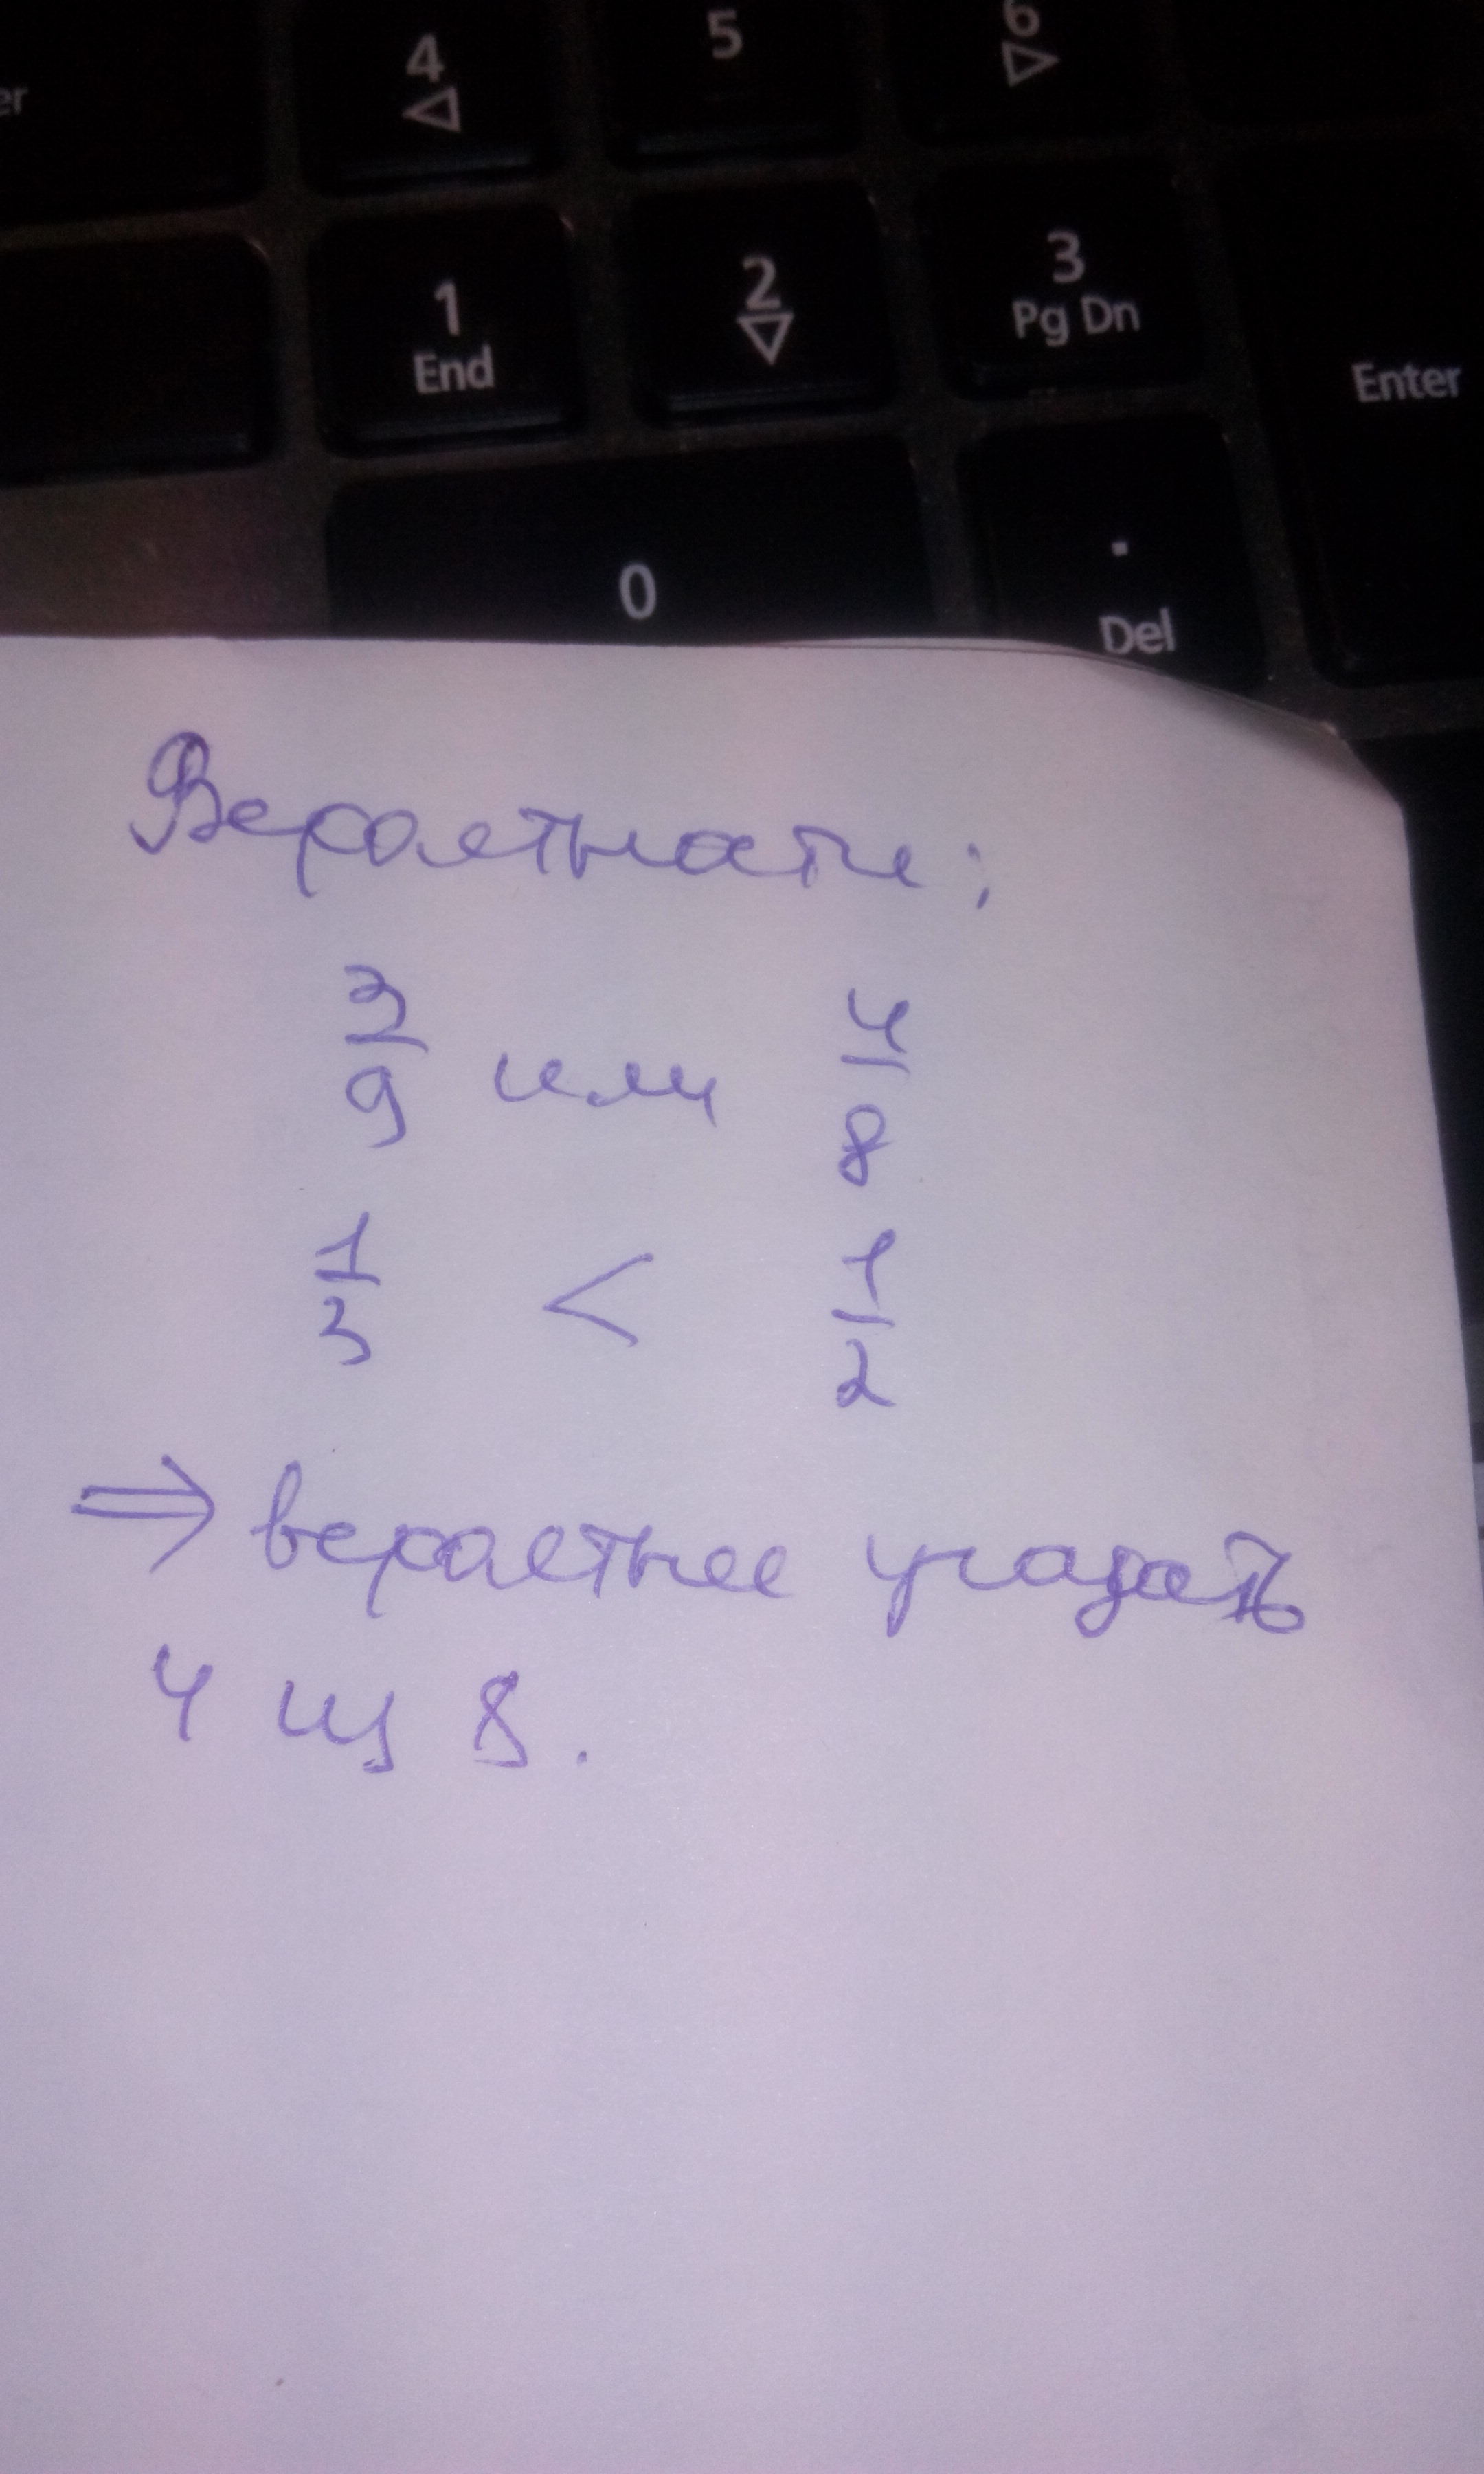 er
4
◁
5
6
▷
1
End
2
▽
3
Pg Dn
Enter
0
.
Del
Вероятности:
3/9 или 4/8
1/3 < 1/2
⇒ вероятнее угадать
4 из 8.